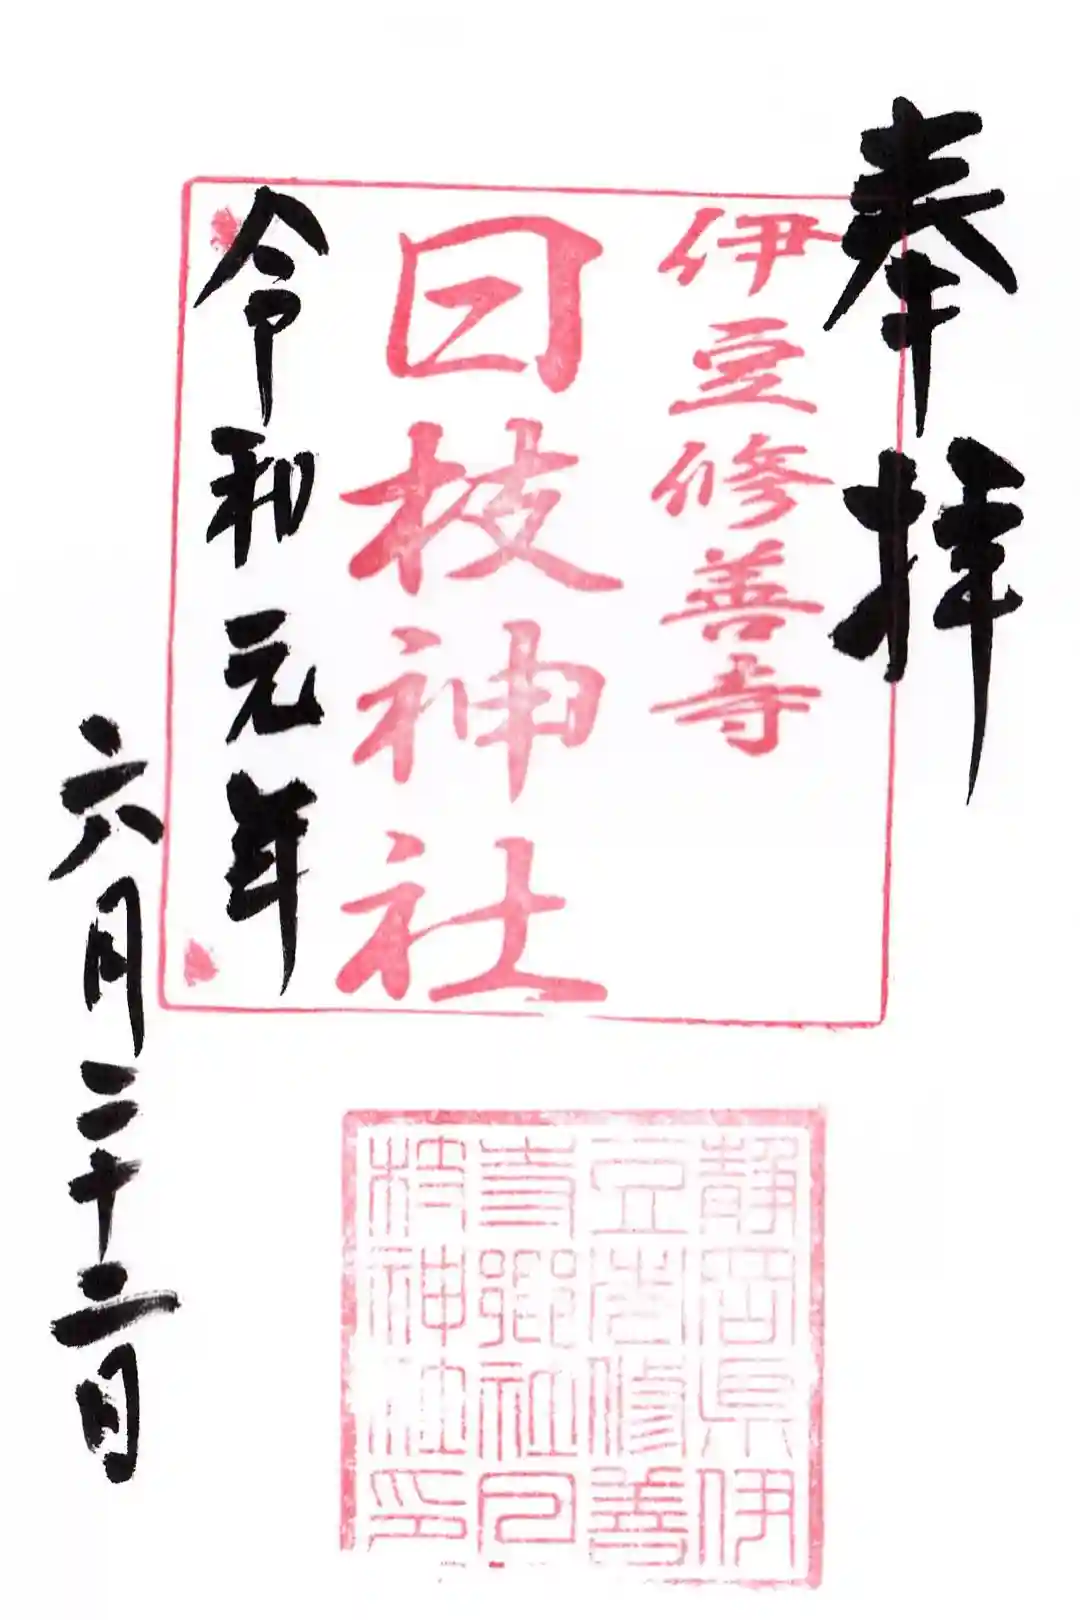 奉拝
伊豆修善寺
日枝神社
令和元年
六月二十二日
静岡県伊
豆市修善
寺郷社日
枝神社印